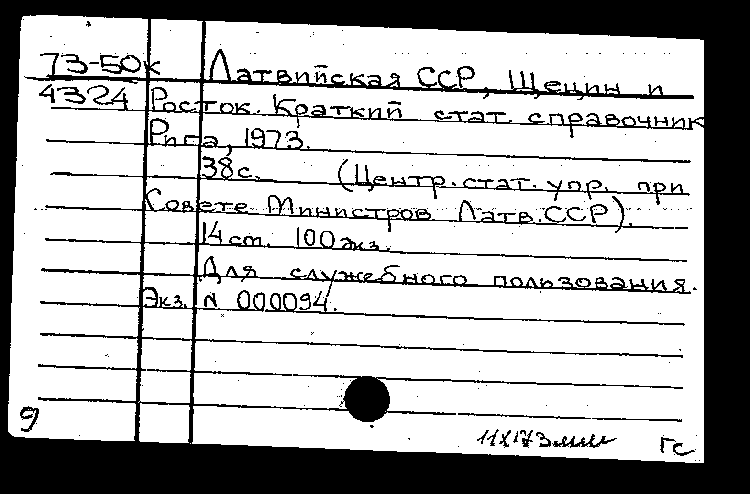 73-50к Латвийская ССР, Щецин и
4324 Росток. Краткий стат. справочник
Рига, 1973.
38с. (Центр.стат.упр. при
Совете Министров Латв.ССР).
14 ст. 100 экз.
Для служебного пользования.
Экз. N 000094.
9 гс